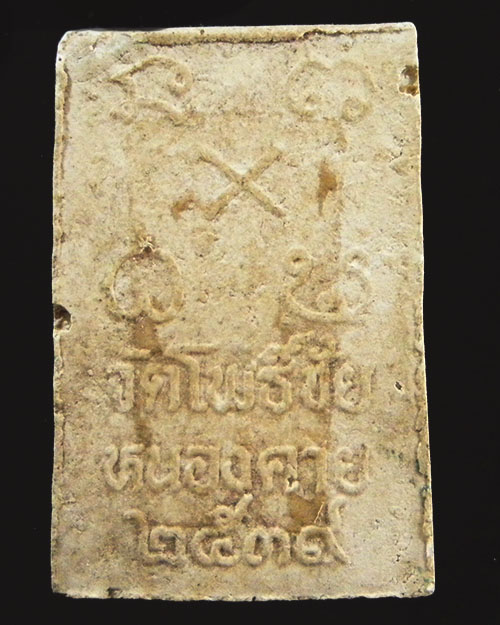 วัดโพธิ์ชัย
หนองคาย
๒๕๓๙